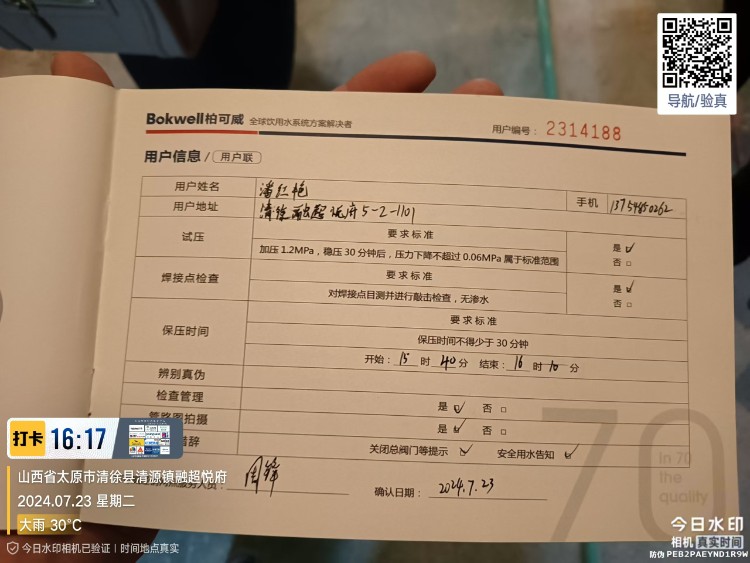 导航/验真
Bokwell柏可威 全球饮用水系统方案解决者
用户编号： 2314188
用户信息 / 用户联
用户姓名 潘红艳 手机 13754850262
用户地址 清徐融超悦府5-2-1101
试压 要求标准 是 ✓
加压 1.2MPa，稳压 30 分钟后，压力下降不超过 0.06MPa 属于标准范围 否 □
焊接点检查 要求标准 是 ✓
对焊接点目测并进行敲击检查，无渗水 否 □
保压时间 要求标准
保压时间不得少于 30 分钟
开始： 15 时 40 分 结束： 16 时 10 分
辨别真伪
检查管理 是 ✓ 否 □
管路图拍摄 是 ✓ 否 □
辞 关闭总阀门等提示 ✓ 安全用水告知 ✓
服务人员： 周锋 确认日期： 2024.7.23
70
In 70
the
quality
打卡 16:17
山西省太原市清徐县清源镇融超悦府
2024.07.23 星期二
大雨 30℃
今日水印相机已验证 | 时间地点真实
今日水印
相机 真实时间
防伪 PEB2PAEYND1R9W